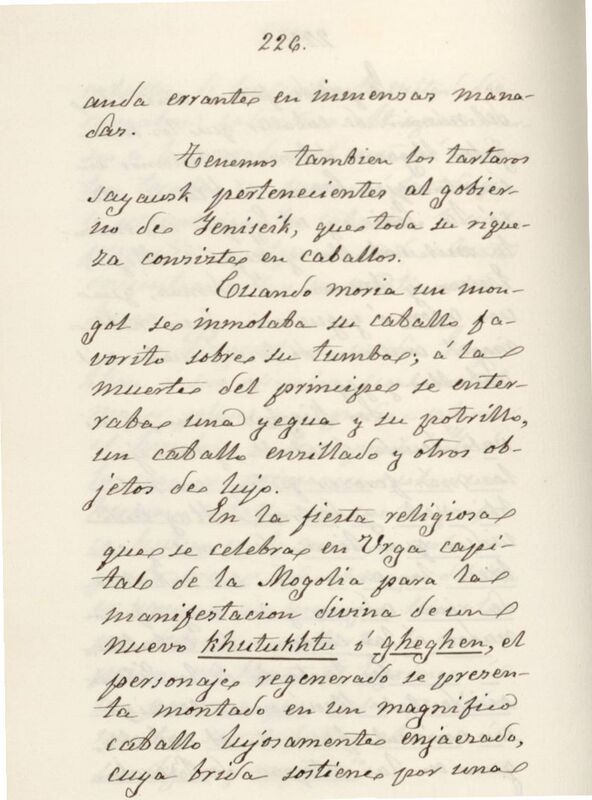 226.
anda errante en inmensas mana-
das.
Tenemos tambien los tartaros
sayansk pertenecientes al gobier-
no de Jeniseik, que toda su rique-
za consiste en caballos.
Cuando moria un mon-
gol se inmolaba su caballo fa-
vorito sobre su tumba; á la
muerte del principe se enter-
raba una yegua y su potrillo,
un caballo ensillado y otros ob-
jetos de lujo.
En la fiesta religiosa
que se celebra en Urga capi-
tal de la Mogolia para la
manifestacion divina de un
nuevo khutukhtu ó gheghen, el
personaje regenerado se presen-
ta montado en un magnifico
caballo lujosamente enjaezado,
cuya brida sostiene por una